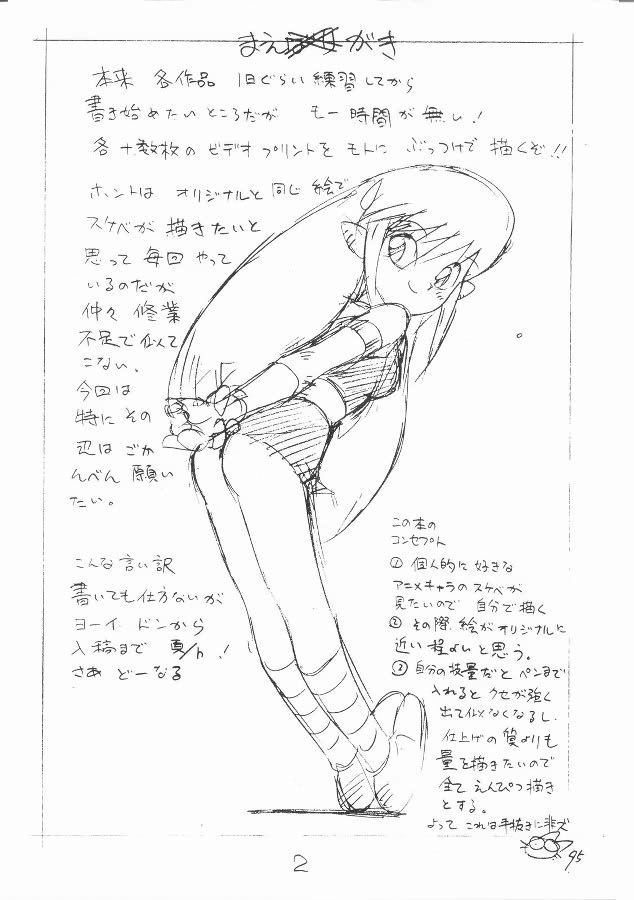 まえがき
本来 各作品 1日ぐらい練習してから
書き始めたいところだが もー時間が無い!
各十数枚のビデオプリントをモトに ぶっつけで描くぞ!!
ホントは オリジナルと同じ絵で
スケベが描きたいと
思って毎回やって
いるのだが
仲々修業
不足で似て
こない、
今回は
特にその
辺はごか
んべん願い
たい。
こんな言い訳
書いても仕方ないが
ヨーイ ドンから
入稿まで
さあ どーなる
この本の
コンセプト
① 個人的に好きな
アニメキャラのスケベが
見たいので 自分で描く
② その際、絵がオリジナルに
近い程よいと思う。
③ 自分の技量だとペンまで
入れるとクセが強く
出て似なくなるし、
仕上げの質よりも
量を描きたいので
全てえんぴつ描き
とする。
よって これは手抜きに非ズ
95
2